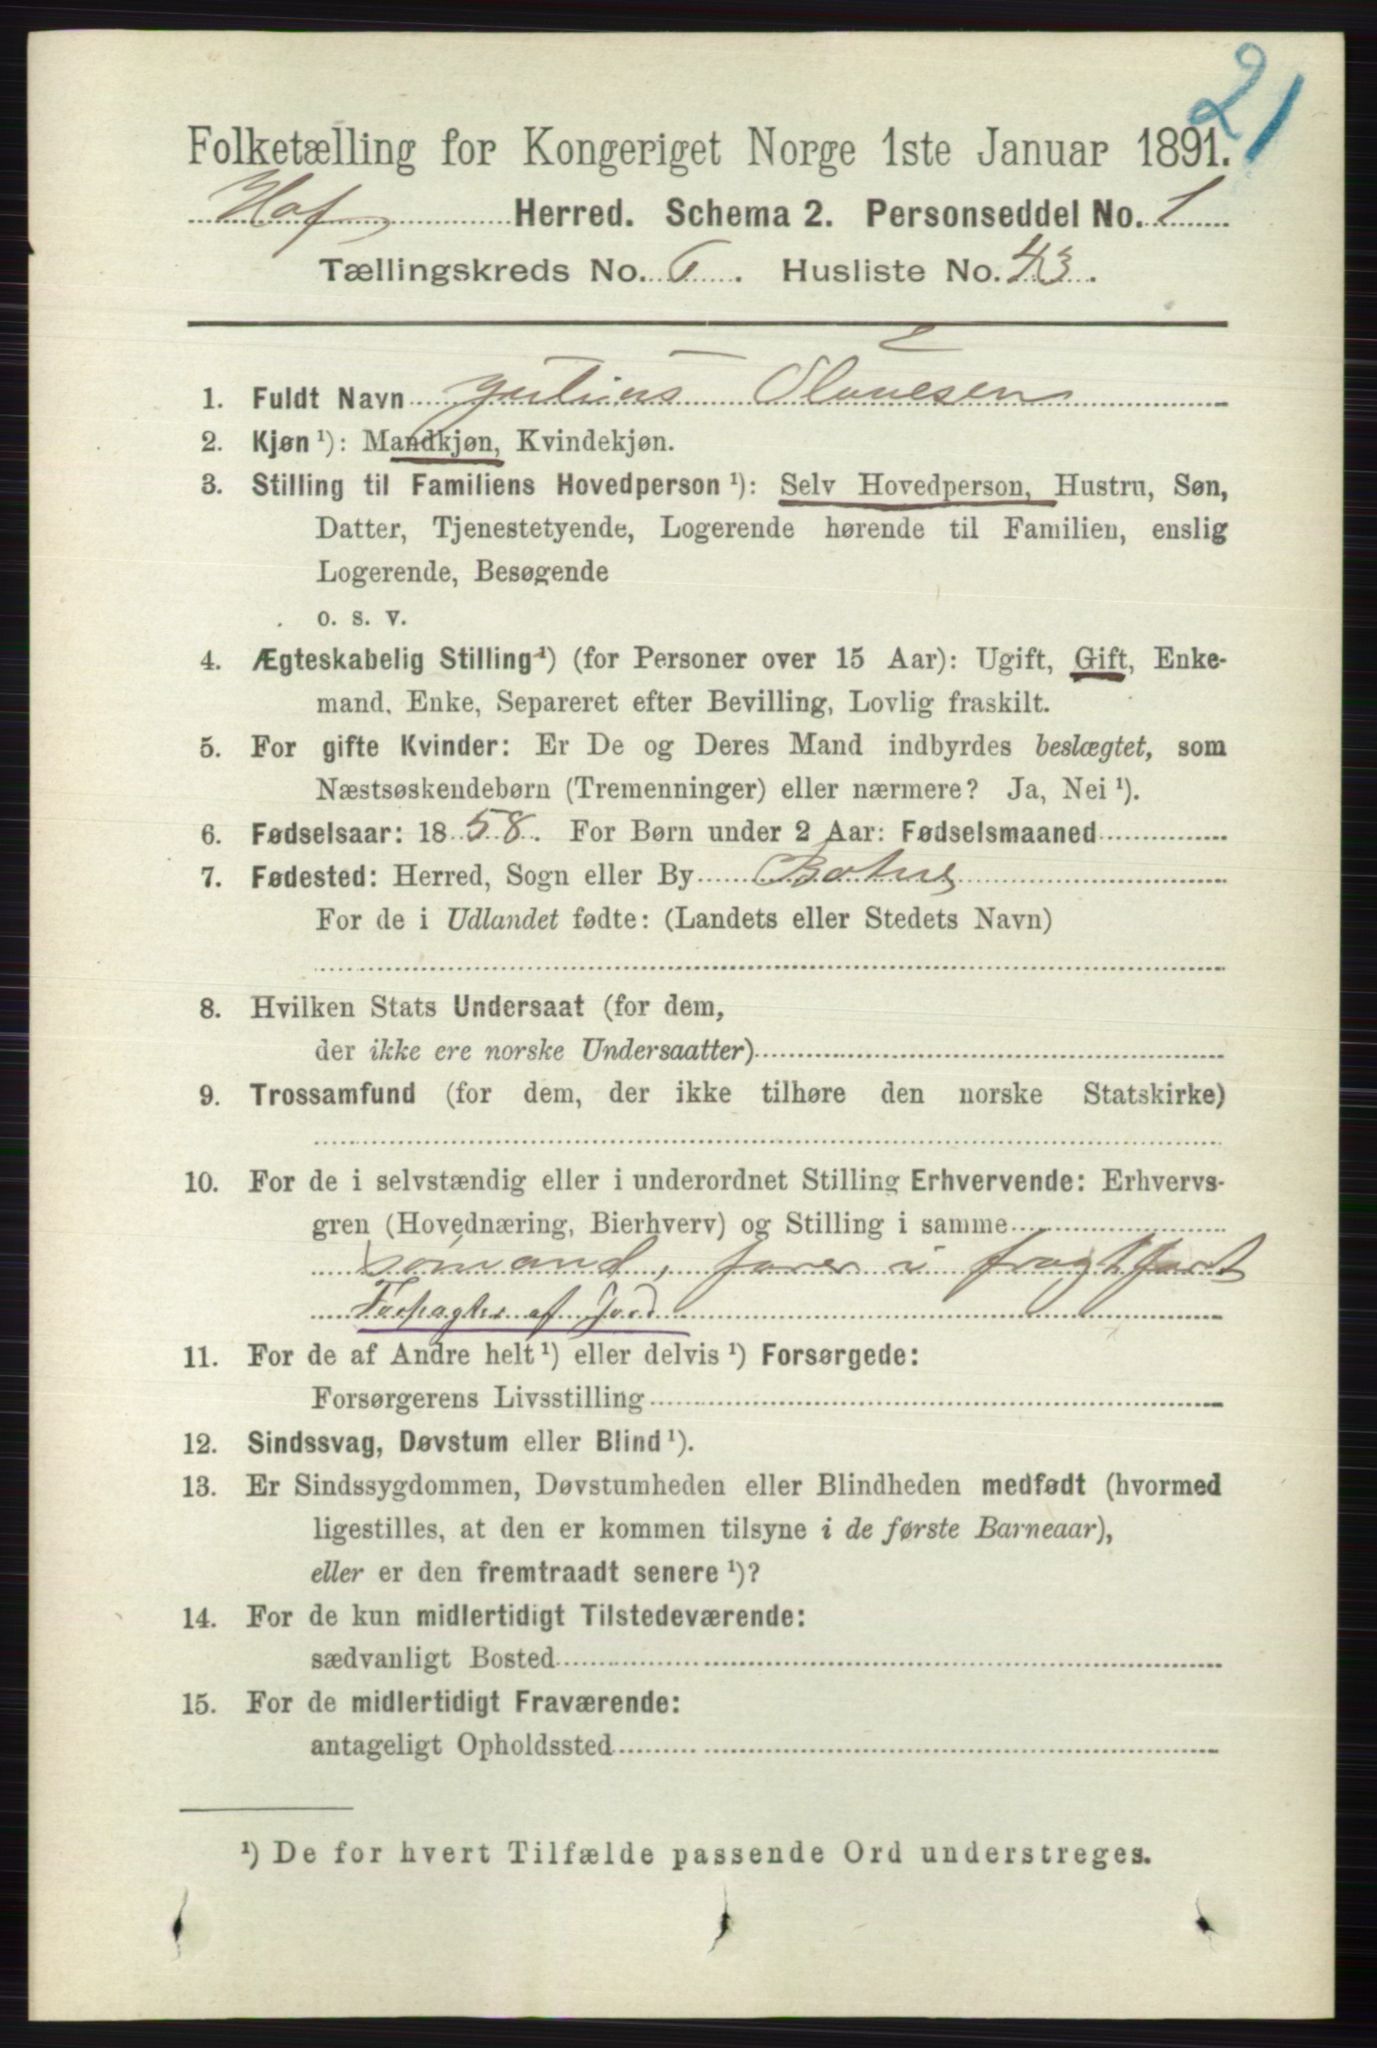 21
Folketælling for Kongeriget Norge 1ste Januar 1891.
Hof Herred. Schema 2. Personseddel No. 1
Tællingskreds No. 6. Husliste No. 43.
1. Fuldt Navn Julius
2. Kjøn ¹): Mandkjøn, Kvindekjøn.
3. Stilling til Familiens Hovedperson ¹): Selv Hovedperson, Hustru, Søn,
Datter, Tjenestetyende, Logerende hørende til Familien, enslig
Logerende, Besøgende
o. s. v.
4. Ægteskabelig Stilling ¹) (for Personer over 15 Aar): Ugift, Gift, Enke-
mand, Enke, Separeret efter Bevilling, Lovlig fraskilt.
5. For gifte Kvinder: Er De og Deres Mand indbyrdes beslægtet, som
Næstsøskendebørn (Tremenninger) eller nærmere? Ja, Nei ¹).
6. Fødselsaar: 1858. For Børn under 2 Aar: Fødselsmaaned
7. Fødested: Herred, Sogn eller By Botne
For de i Udlandet fødte: (Landets eller Stedets Navn)
8. Hvilken Stats Undersaat (for dem,
der ikke ere norske Undersaatter)
9. Trossamfund (for dem, der ikke tilhøre den norske Statskirke)
10. For de i selvstændig eller i underordnet Stilling Erhvervende: Erhvervs-
gren (Hovednæring, Bierhverv) og Stilling i samme
Sømand, farer i fragtfart
Forpagter af Jord
11. For de af Andre helt ¹) eller delvis ¹) Forsørgede:
Forsørgerens Livsstilling
12. Sindssvag, Døvstum eller Blind ¹).
13. Er Sindssygdommen, Døvstumheden eller Blindheden medfødt (hvormed
ligestilles, at den er kommen tilsyne i de første Barneaar),
eller er den fremtraadt senere ¹)?
14. For de kun midlertidigt Tilstedeværende:
sædvanligt Bosted
15. For de midlertidigt Fraværende:
antageligt Opholdssted
¹) De for hvert Tilfælde passende Ord understreges.